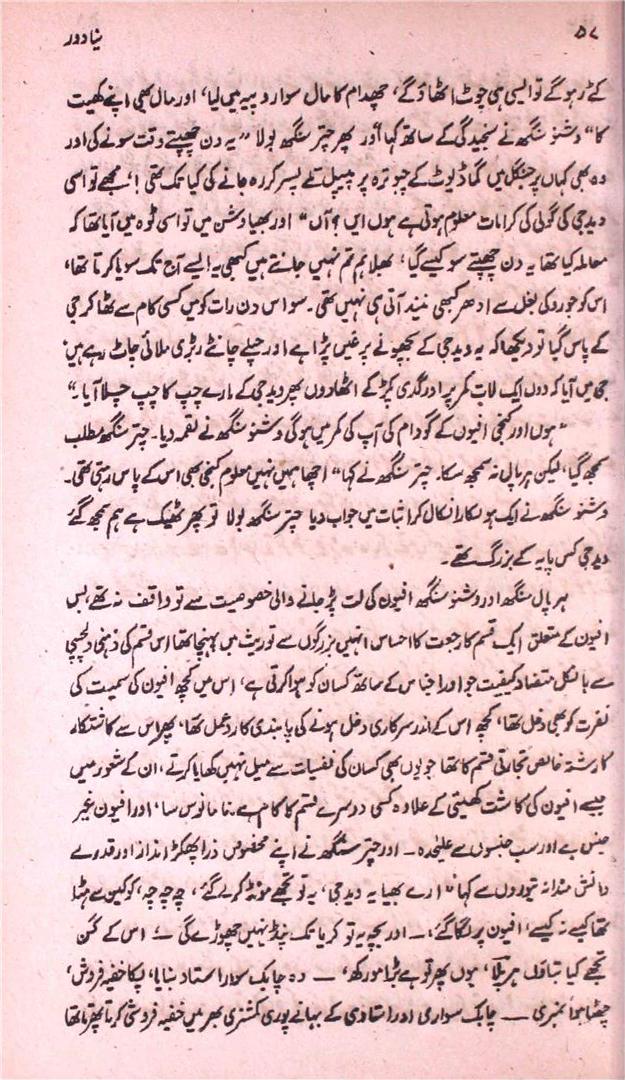 ۵۷ نیا دور
کے ٹر ہو گے تو ایسی ہی چوٹ اٹھاؤ گے، چھدام کا مال سوا روپیہ میں لیا، اور مال بھی اپنے کھیت
کا“ وشنو سنگھ نے سنجیدگی کے ساتھ کہا اور پھر چتر سنگھ بولا ”یہ دن چھپتے وقت سونے کی اور
وہ بھی کہاں پر جنگل میں گماڈیوٹ کے چبوترہ پر پیپل تلے پسر کر رہ جانے کی کیا تک تھی!، مجھے تو اسی
ویدجی کی گولی کی کرامات معلوم ہوتی ہے ہوں ایں؟ آں“ اور بھیا وشن میں تو اسی ٹوہ میں آیا تھا کہ
معاملہ کیا تھا یہ دن چھپتے سو کیسے گیا، بھلا ہم تم نہیں جانتے ہیں کبھی یہ ایسے آج تک سویا کرتا تھا،
اس کو جورو کی بغل سے ادھر کبھی نیند آتی ہی نہیں تھی۔ سو اس دن رات کو میں کسی کام سے ٹھاکر جی
کے پاس گیا تو دیکھا کہ یہ ویدجی کے بچھونے پر غیں پڑا ہے اور چیلے چانٹے ربڑی ملائی چاٹ رہے ہیں
جی میں آیا کہ دوں ایک لات کمر پر اور گدی پکڑ کے اٹھا دوں پھر ویدجی کے مارے چپ کا چپ چلا آیا۔“
”ہوں اور کنجی افیوں کے گودام کی آپ کی کمر میں ہو گی وشنو سنگھ نے لقمہ دیا۔ چتر سنگھ مطلب
سمجھ گیا، لیکن ہرپال نہ سمجھ سکا۔ چتر سنگھ نے کہا“ اچھا ہمیں نہیں معلوم کنجی بھی اس کے پاس رہتی تھی۔
وشنو سنگھ نے ایک ہونکارا نکال کر اثبات میں جواب دیا چتر سنگھ بولا تو پھر ٹھیک ہے ہم سمجھ گئے
ویدجی کس پایہ کے بزرگ تھے۔
ہرپال سنگھ اور وشنو سنگھ افیون کی لت پڑ جانے والی خصوصیت سے تو واقف نہ تھے، بس
افیون کے متعلق ایک قسم کا رجعت کا احساس انہیں بزرگوں سے توریث میں پہنچا تھا اس قسم کی ذہنی دلچسپی
سے بالکل متضاد کیفیت جو اور اجناس کے ساتھ کسان کو ہوا کرتی ہے، اس میں کچھ افیون کی سمیت کی
نفرت کو بھی دخل تھا، کچھ اس کے اندر سرکاری دخل ہونے کی پابندی کا ردعمل تھا، پھر اس سے کاشتکار
کا رشتہ خالص تجارتی قسم کا تھا جو یوں بھی کسان کی نفسیات سے میل نہیں کھایا کرتے، ان کے شعور میں
جیسے افیون کی کاشت کھیتی کے علاوہ کسی دوسرے قسم کا کام ہے۔ نامانوس سا، اور افیون غیر
جنس ہے اور سب جنسوں سے علیحدہ — اور چتر سنگھ نے اپنے مخصوص ذرا پھکڑ انداز اور قدرے
دانش مندانہ تیوروں سے کہا ”ارے بھیا یہ ویدجی، یہ تو تجھے مونڈ کر لے گئے، چہ چہ چہ، کوکین سے ہٹا
تھا کیسے نہ کیسے، افیون پر لگا گئے، — اور بچہ یہ تو کریا تک پنڈ نہیں چھوڑے گی —؛ اس کے گن
تجھے کیا بتاؤں ہریلا، یوں پھر تو ہے بڑا مورکھ، — وہ چابک سوار استاد بنایا، پکا خفیہ فروش،
چھٹا ہوا نمبری — چابک سواری اور استادی کے بہانے پوری کمشنری بھر میں خفیہ فروشی کرتا پھرتا تھا